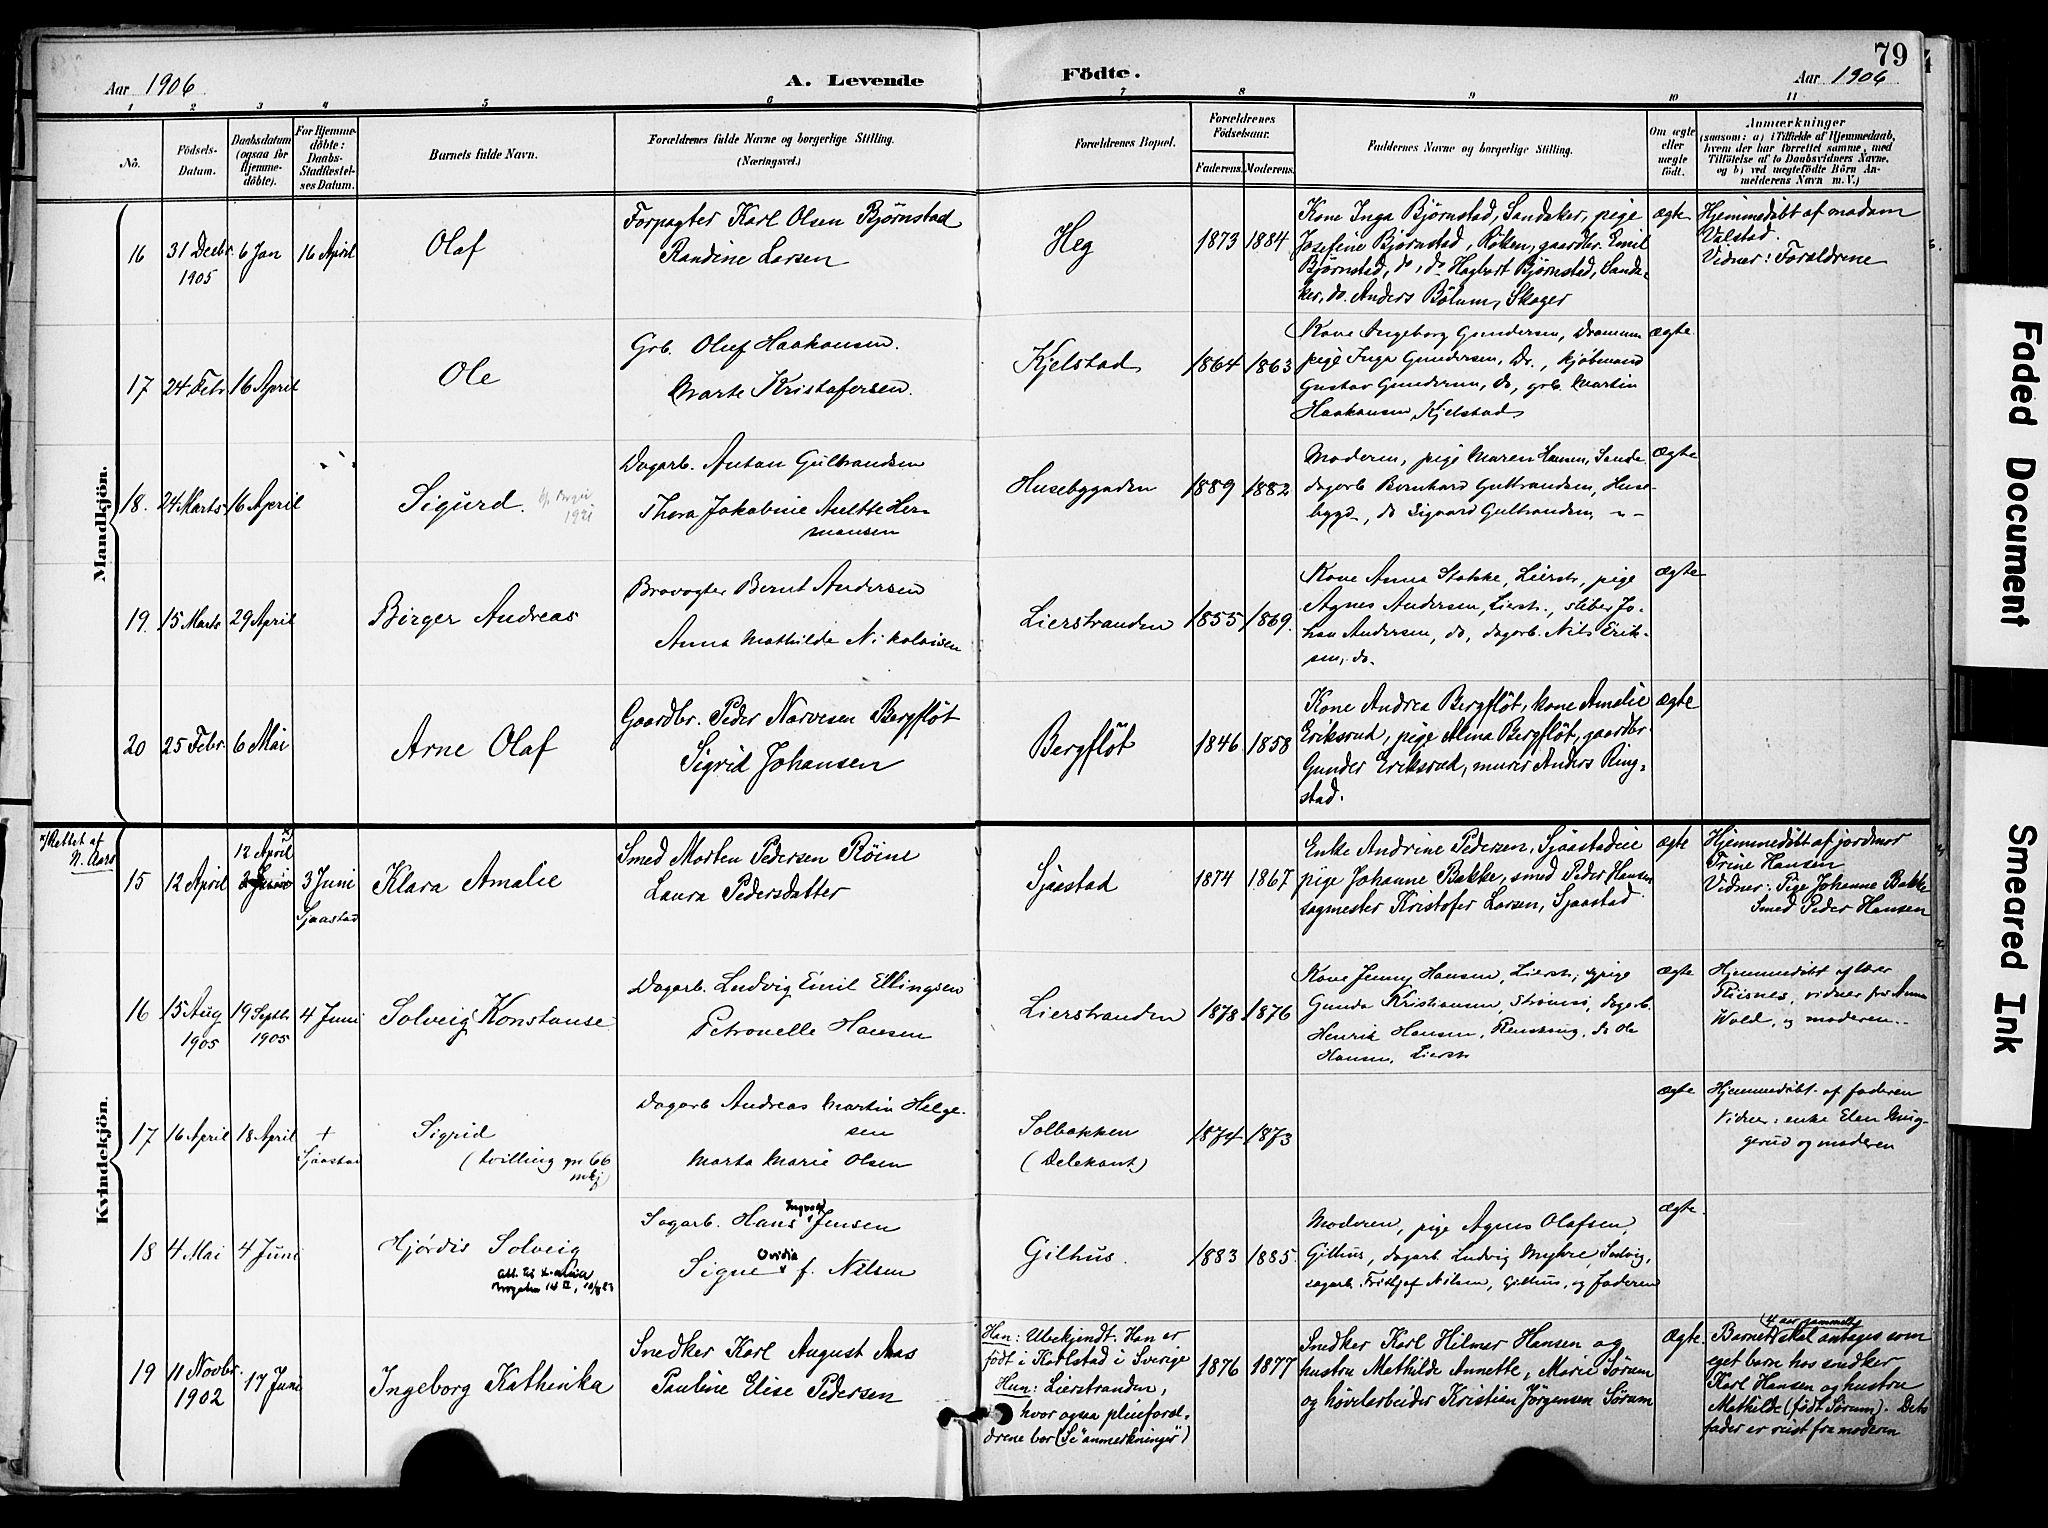 79
Aar 1906
A. Levende Födte.
Aar 1906
1 2 3 4 5 6 7 8 9 10 11
Nô.
Födsels-
Datum.
Daabsdatum
(ogsaa for
Hjemme-
döbte).
For Hjemme-
döbte:
Daabs-
Stadfæstel-
ses Datum.
Barnets fulde Navn.
Forældrenes fulde Navne og borgerlige Stilling.
(Næringsvei.)
Forældrenes Bopæl.
Forældrenes
Födselsaar.
Faderens.
Moderens.
Faddernes Navne og borgerlige Stilling.
Om ægte
eller
uægte
födt.
Anmærkninger
(saasom: a) i Tilfælde af Hjemmedaab,
hvem der har forrettet samme, med
Tilföielse af to Daabsvidners Navne,
og b) ved uægtefödte Börn An-
melderens Navn m. V.)
Mandkjön.
16
31 Decbr.
1905
6 Jan
16 April
Olaf
Forpagter Karl Olsen Bjørnstad
Randine Larsen
Heg
1873
1884
Kone Inga Bjørnstad, Sandaker, pige
Josefine Bjørnstad, Røken, gaardbr. Emil
Bjørnstad, do, do Hagbart Bjørnstad, Sanda-
ker, do. Anders Bölum, Skoger
ægte
Hjemmedöbt af madam
Valstad.
Vidner: Forældrene
17
24 Febr
16 April
Ole
Grb. Oluf Haakonsen.
Marte Kristofersen.
Kjelstad
1864
1863
Kone Ingeborg Gundersen, Drammen
pige Inga Gundersen, Dr., kjøbmand
Gustav Gundersen, do, grb. Martin
Haakonsen, Kjelstad
ægte
18.
24 Marts
16 April
Sigurd.
1921
Dagarb. Anton Gulbrandsen
Thora Jakobine Anette Her-
mansen
Husebygaden
1889
1882
Moderen, pige Maren Hansen, Sande
dagarb Bernhard Gulbrandsen, Huse-
bygd, do Sigvard Gulbrandsen, - " -
ægte
19.
15 Marts
29 April
Birger Andreas
Brovogter Bernt Andersen
Anna Mathilde Nikolaisen
Lierstranden
1855
1869.
Kone Anna Stokke, Lierstr, pige
Agnes Andersen, Lierstr., støber Jo-
han Andersen, do, dagarb. Nils Erik-
sen, do.
ægte
20
25 Febr
6 Mai
Arne Olaf
Gaardbr. Peder Narvesen Bergflöt
Sigrid Johansen
Bergflöt
1846
1858
Kone Andrea Bergflöt, kone Amalie
Eriksrud, pige Alma Bergflöt, gaardbr
Gunder Eriksrud, murer Anders Ring-
stad.
ægte
Kvindekjön.
x/ Rettet af
N. Aars
15
12 April
12 April x)
3 Juni
Sjaastad
Klara Amalie
Smed Morten Pedersen Röine
Laura Pedersdatter
Sjaastad
1874
1867
Enke Andrine Pedersen, Sjaastadeie
pige Johanne Bakke, smed Peder Hansen
sagmester Kristofer Larsen, Sjaastad
ægte
Hjemmedöbt af jordmor
Trine Hansen
Vidner: Pige Johanne Bakke
Smed Peder Hansen
16
15 Aug
1905
19 Septbr.
1905
4 Juni
Solveig Konstanse
Dagarb. Ludvig Emil Ellingsen
Petronelle Hansen
Lierstranden
1878
1876
Kone Jenny Hansen, Lierstr, pige
Gunda Kristiansen, Strömsö, dagarb.
Henrik Hansen, do Ole
Hansen, Lierstr
ægte
Hjemmedöbt af lær
Riisnes, vidner fru Anna
Wold, og moderen.
17
16 April
18 April
+
Sjaastad
Sigrid
(tvilling nr 66
mkj)
Dagarb Andreas Martin Helge-
sen
Marta Marie Olsen
Solbakken
(Delekant)
1874
1873
ægte
Hjemmedöbt af faderen
Vidner: enke Elen Mug-
gerud og moderen
18
4 Mai
4 Juni
Hjördis Solveig
Sagarb. Hans Ingvald Jensen
Signe Ovidia f. Nilsen
Gilhus.
1883
1885.
Moderen, pige Agnes Olafsen,
Gilhus, dagarb Ludvig Myhre, Solvig,
sagarb. Fritjof Nilsen, Gilhus, og faderen
ægte
19
11 Novbr.
1902
17 Juni
Ingeborg Kathinka
Snedker Karl August Aas
Pauline Elise Pedersen
Han: Ubekjendt. Han er
født i Karlstad i Sverige
Hun: Lierstranden,
hvor ogsaa pleieforæl-
drene bor (Se "anmerkninger")
1876
1877
Snedker Karl Hilmer Hansen og
hustru Mathilde Annette, Marie Sörum
og høvelarbeider Kristian Jörgensen Sörum
ægte
Barnet (4 aar gammelt) skal antages som
eget barn hos snedker
Karl Hansen og hustru
Mathilde (født Sörum). Dets
fader er reist fra moderen
Faded Document
Smeared Ink